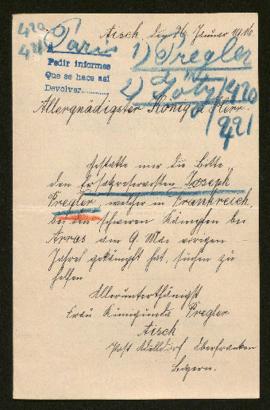 420
421
Paris
Pedir informes
Que se hace así
Devolver
Aisch, den 26. Jänner 1916.
1) Pregler
2) Goty 420
/421
Allergnädigster König u. Herr.
gestatte mir die Bitte
den Ersatzreservisten Joseph
Pregler, welcher in Frankreich
bei den schweren Kämpfen bei
Arras am 9. Mai vorigen
Jahres gekämpft hat, suchen zu
helfen
Alleruntertänigst
Frau Kunigunda Pregler
Aisch
Post Oberfranken
Bayern.